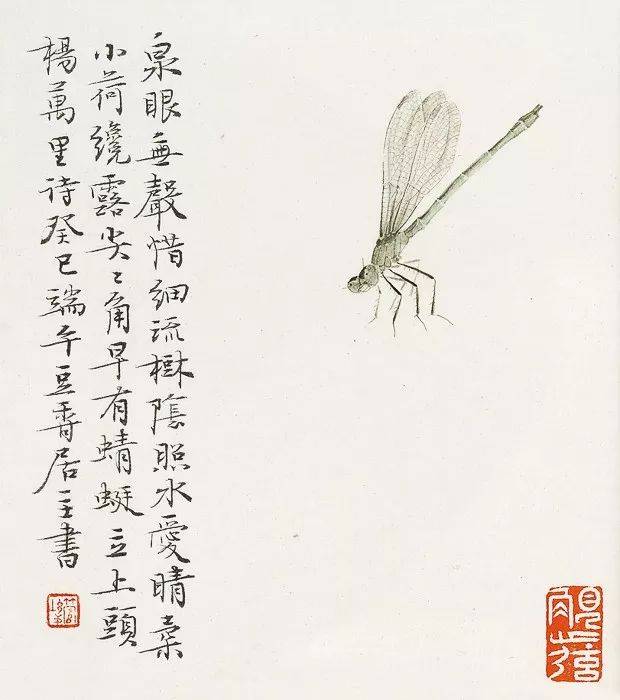 泉眼無聲惜細流樹陰照水愛晴柔
小荷纔露尖〻角早有蜻蜓立上頭
楊萬里詩癸巳端午豆香居主書